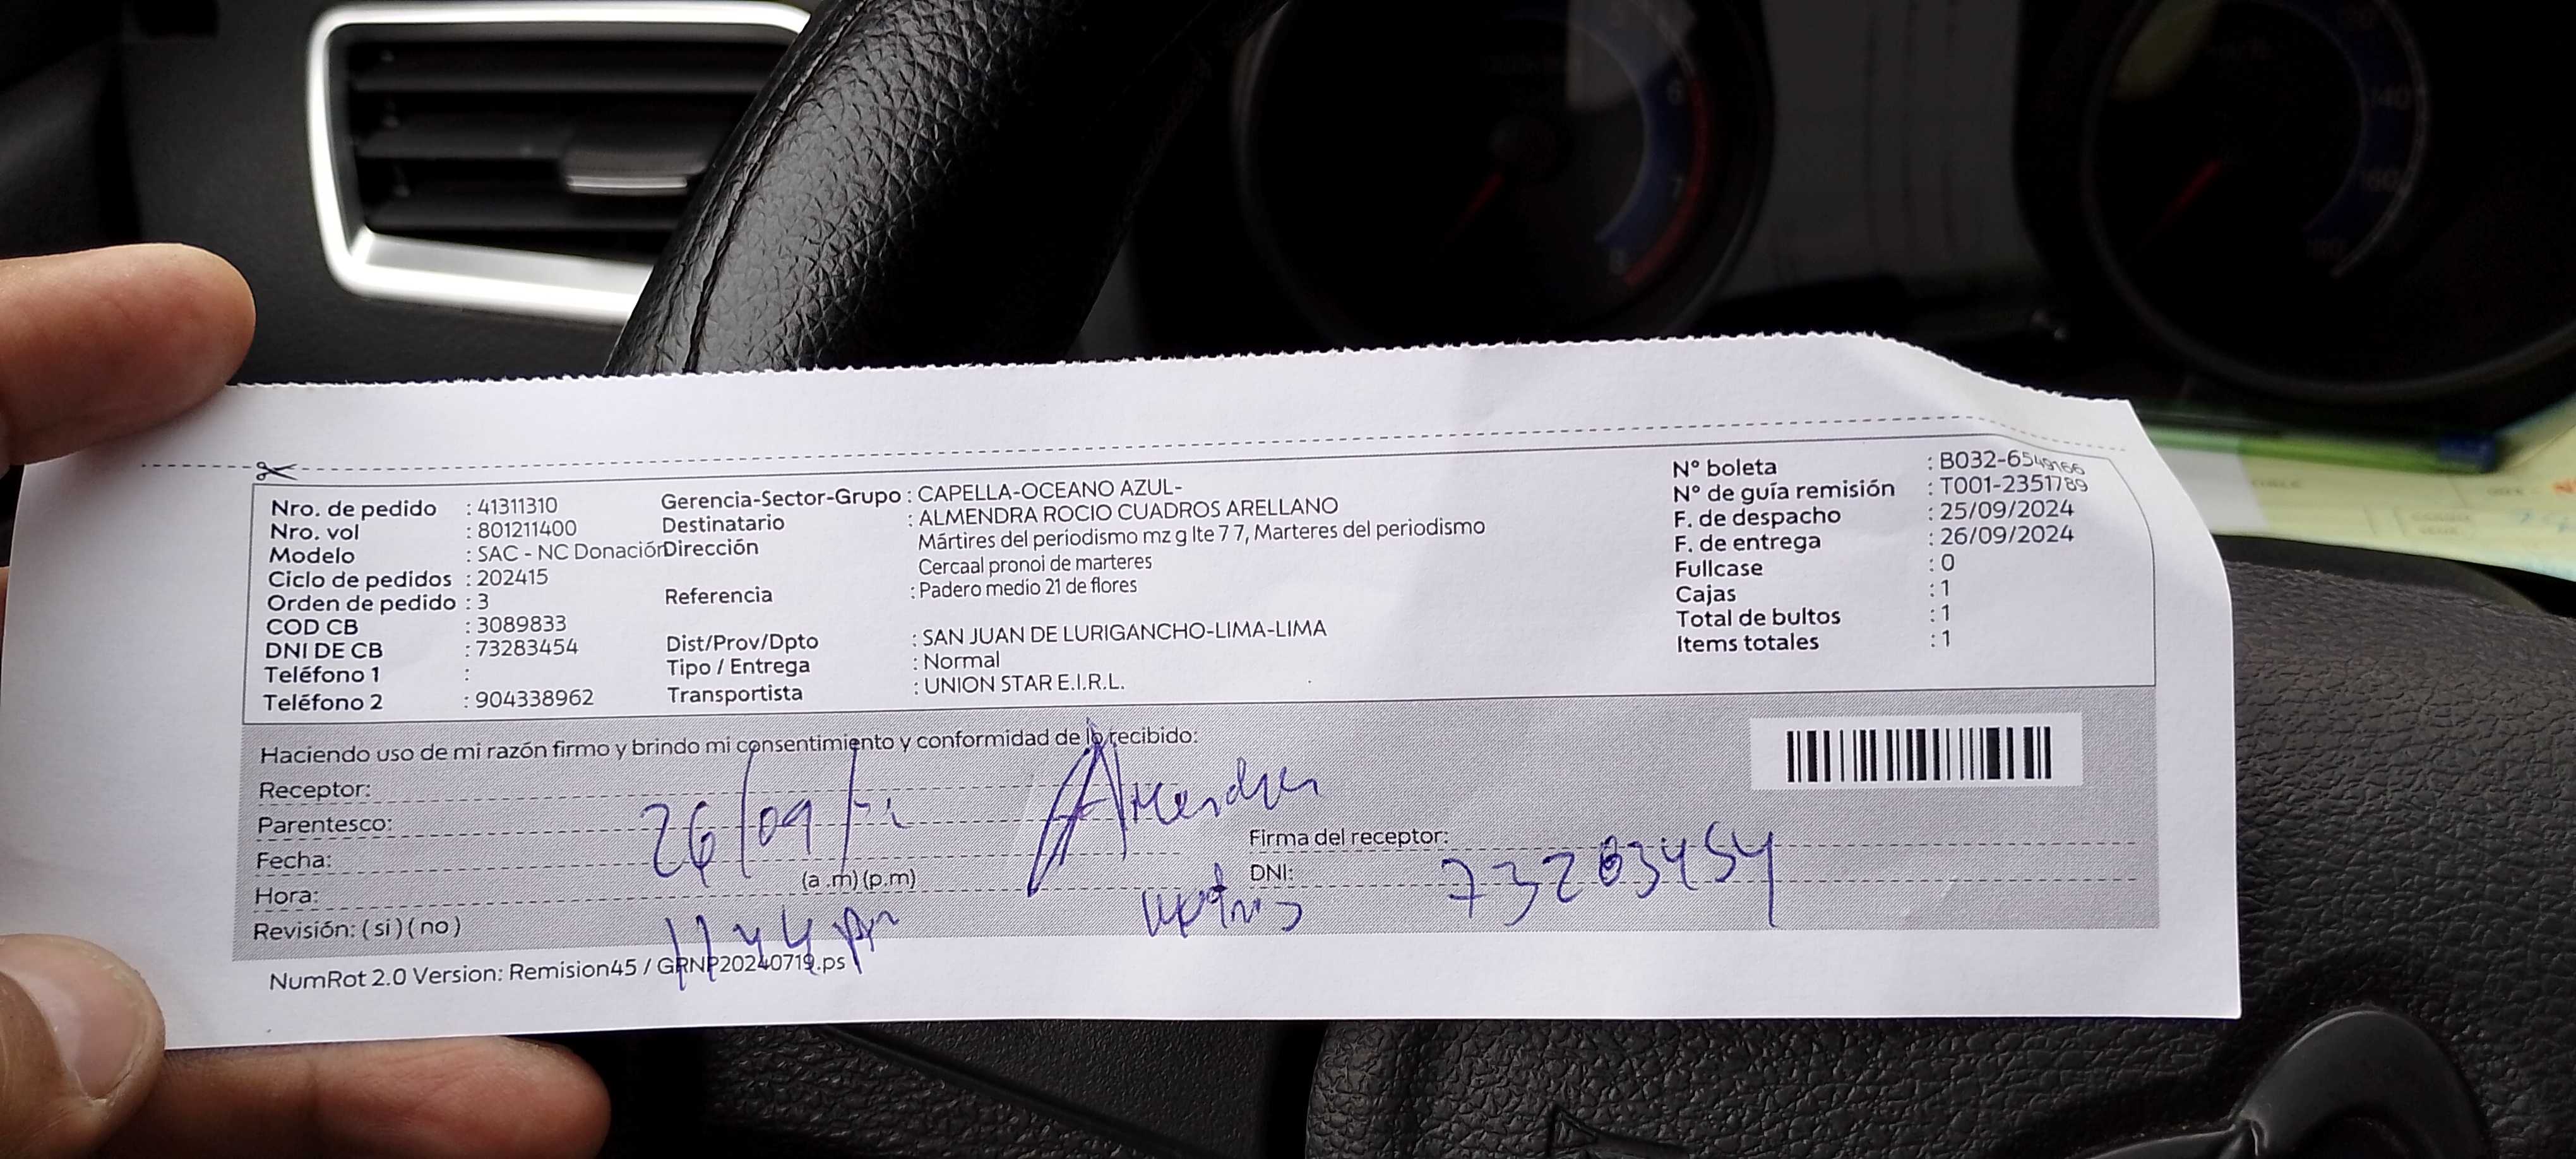 Nro. de pedido : 41311310
Nro. vol : 801211400
Modelo : SAC - NC Donación
Ciclo de pedidos : 202415
Orden de pedido : 3
COD CB : 3089833
DNI DE CB : 73283454
Teléfono 1 :
Teléfono 2 : 904338962
Gerencia-Sector-Grupo : CAPELLA-OCEANO AZUL-
Destinatario : ALMENDRA ROCIO CUADROS ARELLANO
Dirección Mártires del periodismo mz g lte 7 7, Marteres del periodismo
Cercaal pronoi de marteres
Referencia : Padero medio 21 de flores
Dist/Prov/Dpto : SAN JUAN DE LURIGANCHO-LIMA-LIMA
Tipo / Entrega : Normal
Transportista : UNION STAR E.I.R.L.
N° boleta : B032-6549166
N° de guía remisión : T001-2351789
F. de despacho : 25/09/2024
F. de entrega : 26/09/2024
Fullcase : 0
Cajas : 1
Total de bultos : 1
Items totales : 1
Haciendo uso de mi razón firmo y brindo mi consentimiento y conformidad de lo recibido:
Receptor:
Parentesco:
Fecha: 26/09/
Hora: (a .m) (p.m)
Revisión: ( si ) ( no )
Almendra
Firma del receptor:
DNI: 73283454
NumRot 2.0 Version: Remision45 / GRNP20240719.ps
6
7
8
140
160
180